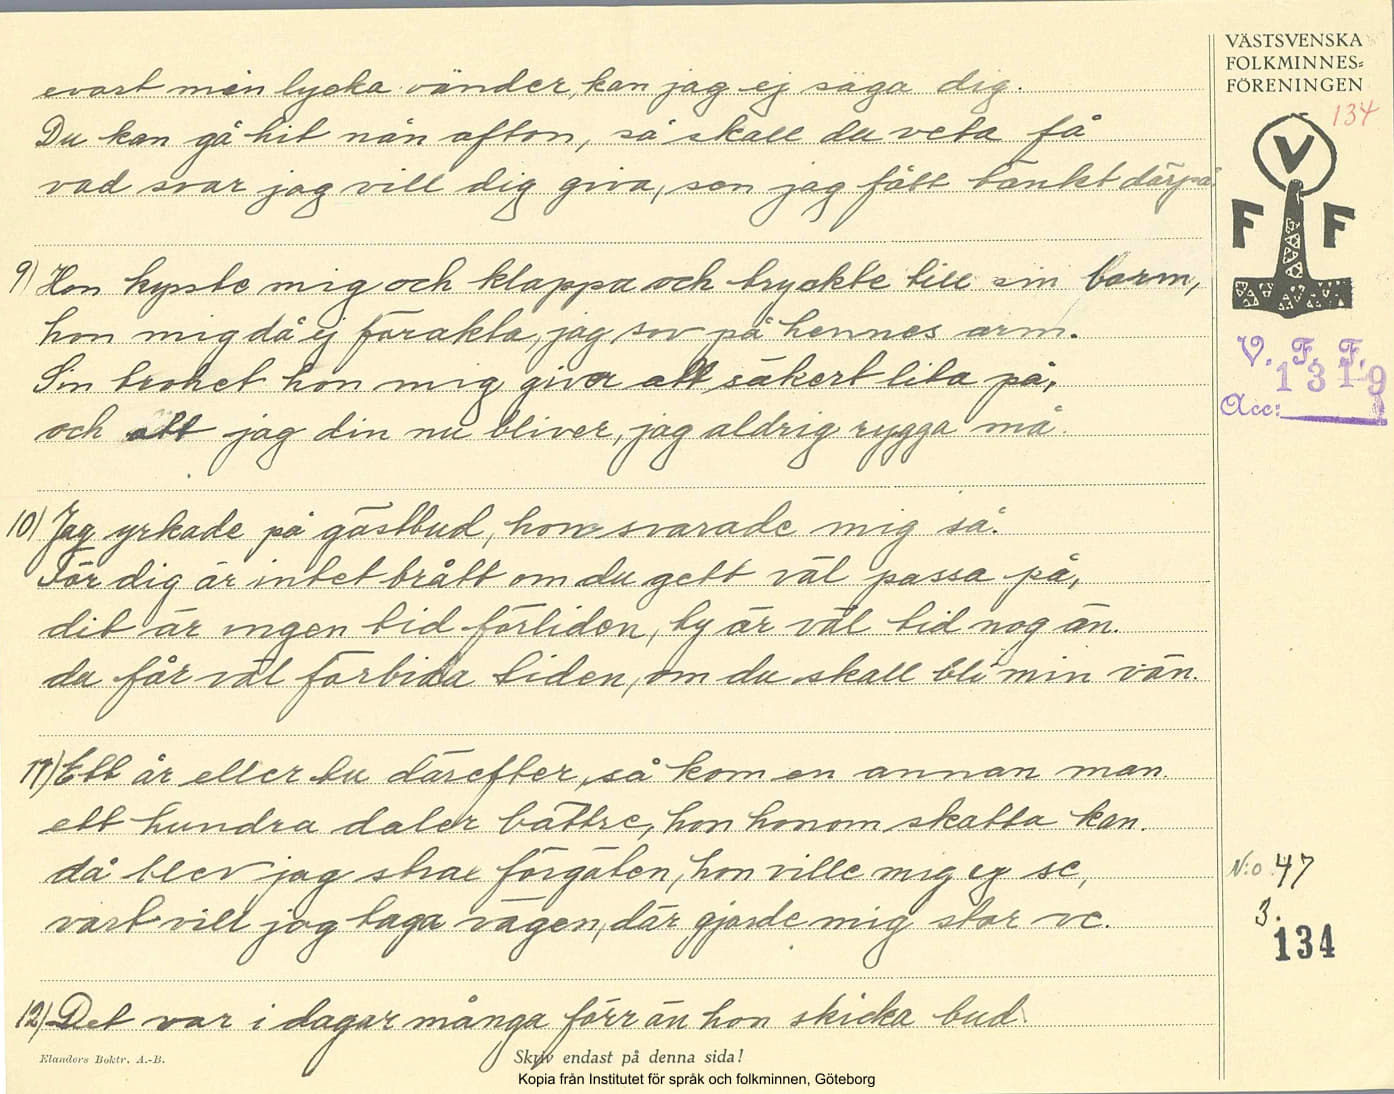 evart min lycka vänder, kan jag ej säga dig.
Du kan gå hit nån afton, så skall du veta få
vad svar jag vill dig giva, sen jag fått tänkt därpå
9) Hon kysste mig och klappa och tryckte till sin barm,
hon mig då ej förakta, jag sov på hennes arm.
Sin trohet hon mig giver att säkert lita på,
och att jag din nu bliver, jag aldrig rygga må.
10) Jag yrkade på gästbud, hon svarade mig så.
För dig är intet brått om du gett väl passa på,
dit är ingen tid förliden, ty är väl tid nog än.
du får väl förbida tiden, om du skall bli min vän.
11) Ett år eller tu därefter, så kom en annan man
ett hundra daler bättre, hon honom skatta kan.
då blev jag strax förgäten, hon ville mig ej se,
vart vill jag taga vägen, där gjorde mig stor ve.
12) Det var i dagar många förr än hon skicka bud
Elanders Boktr. A.-B.
Skriv endast på denna sida!
Kopia från Institutet för språk och folkminnen, Göteborg
VÄSTSVENSKA
FOLKMINNES=
FÖRENINGEN
134
V
F F
V. F. F.
1319
Acc:
N:o 47
3.
134